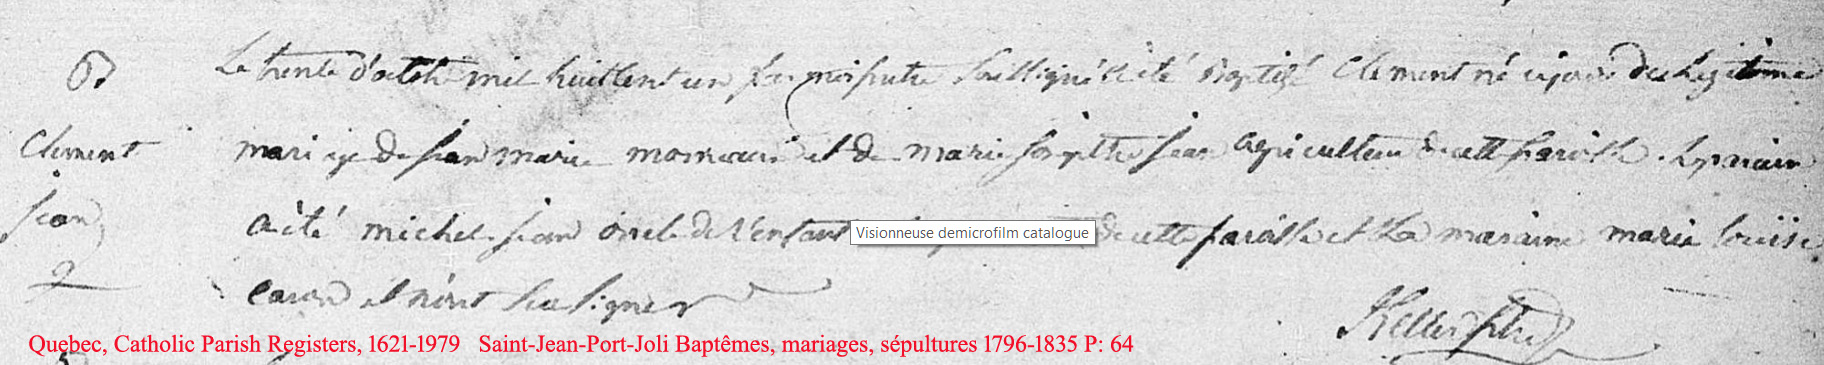 B
Le trente d'octob mil huit cent un par moi prêtre soussigné a été baptizé Clement né ce jour du legitime
Clement
mariage de jean marie et de marie jean agriculteur de cette paroisse. Le parain
jean
a été michel jean oncle de l'enfant de cette paroisse et la maraine marie louise
caron et n'ont su signer
Keller ptre
Visionneuse demicrofilm catalogue
Quebec, Catholic Parish Registers, 1621-1979 Saint-Jean-Port-Joli Baptêmes, mariages, sépultures 1796-1835 P: 64